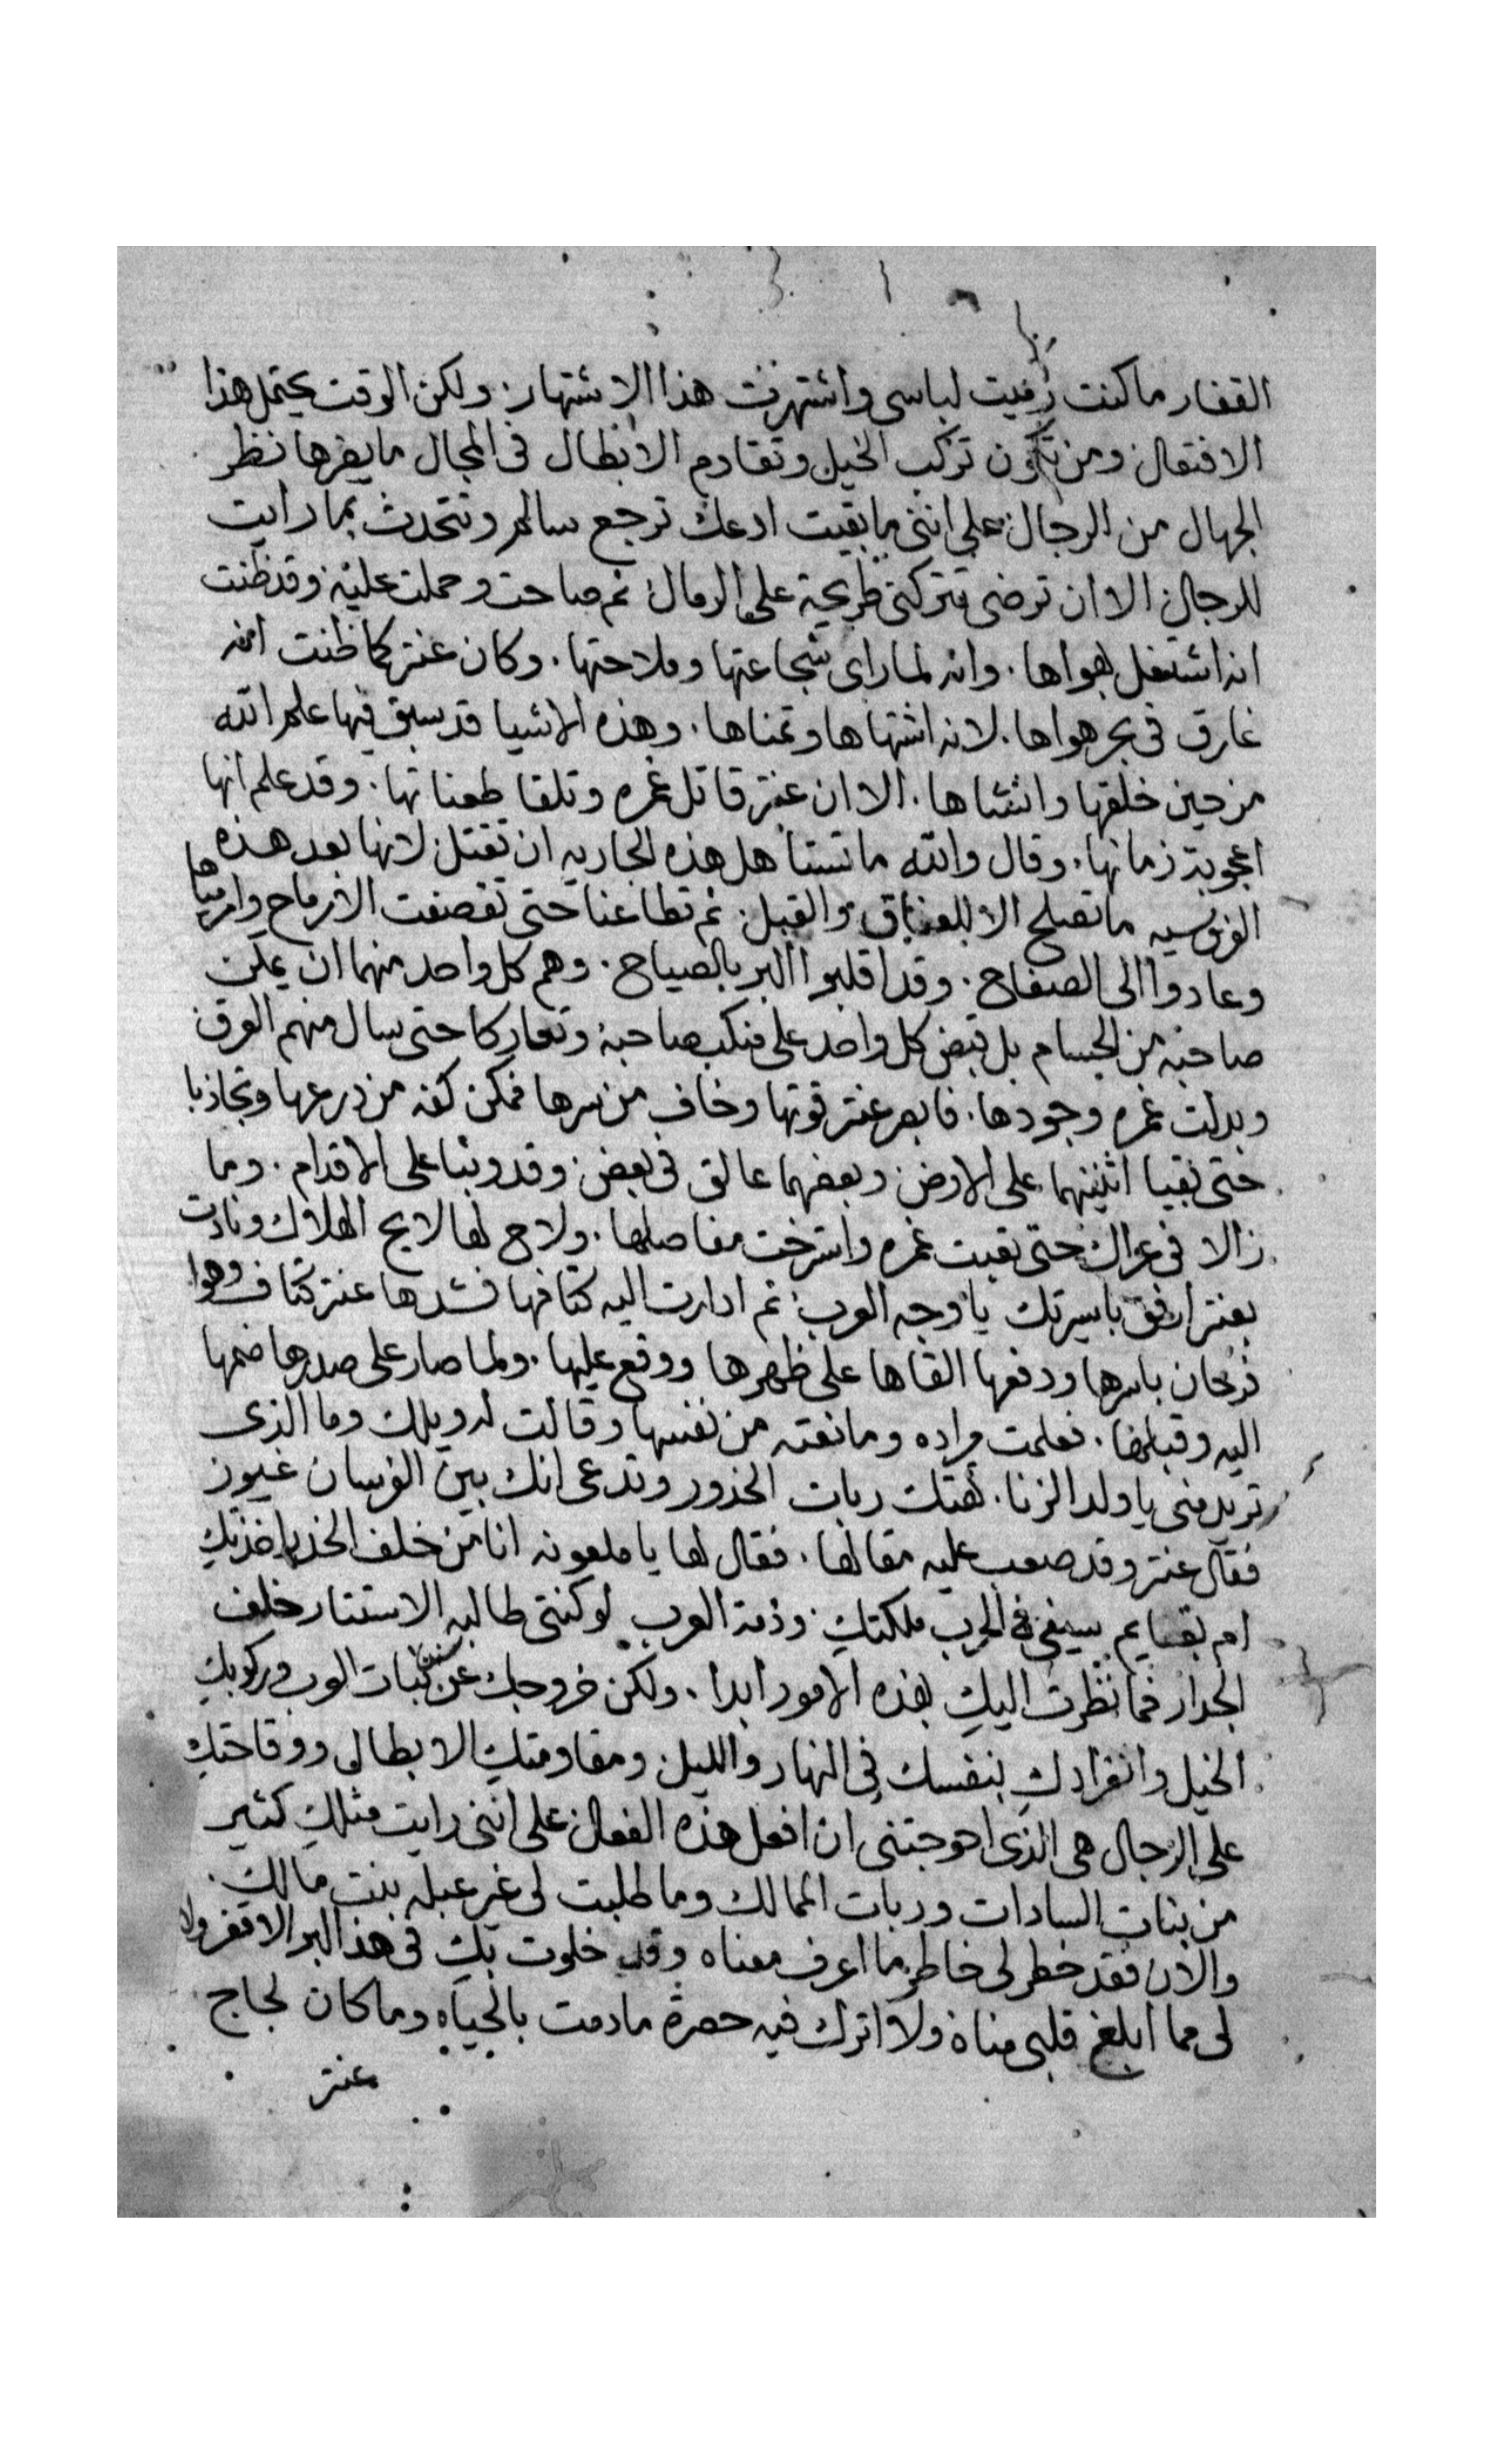 القفار ما كنت رميت لباسي واشتهرت هذا الاشتهار ولكن الوقت يحتمل هذا
الافتعال ومن تكون تركب الخيل وتقادم الابطال في المجال ما يضرها نظر
الجهال من الرجال على انني ما بقيت ادعك ترجع سالم وتتحدث بما رايت
للرجال الا ان ترضى تتركني طريحة على الرمال ثم صاحت وحملت عليه وقد ظنت
انه اشتغل بهواها. وانه لما راى شجاعتها وملاحتها. وكان عنتر كما ظنت انه
غارق في بحر هواها. لانه اشتهاها وتمناها. وهذه الاشيا قد سبق فيها علم الله
من حين خلقها وانشاها. الا ان عنتر قاتل غمره وتلقا طعناتها. وقد علم انها
اعجوبة زمانها. وقال والله ما تستاهل هذه الجاريه ان تقتل لانها بعد هذه
الفروسيه ما تصلح الا للعناق والقبل. ثم تطاعنا حتى تقصفت الارماح وارمياها
وعادوا الى الصفاح. وقد اقلبوا البر بالصياح. وهم كل واحد منهما ان يمكن
صاحبه من الحسام بل قبض كل واحد على منكب صاحبه وتعاركا حتى سال منهم العرق
وبدلت غمره وجودها. فابصر عنتر قوتها وخاف من سرها فمكن كفه من درعها وتجاذبا
حتى بقيا اثنينهما على الارض وبعضهما عالق في بعض وقد وثبا على الاقدام. وما
زالا في عراك حتى تعبت غمره واسترخت مفاصلها. ولاح لها لايح الهلاك ونادت
بعنتر ارفق باسيرتك يا وجه العرب ثم ادارت اليه كتافها فشدها عنتر كتاف وهوا
فرحان باسرها ودفعها القاها على ظهرها ووقع عليها. ولما صار على صدرها ضمها
اليه وقبلها. فعلمت مراده ومانعته من نفسها وقالت له ويلك وما الذى
تريد منى يا ولد الزنا. تهتك ربات الخدور وتدعى انك بين الفرسان غيور
فقال عنتر وقد صعب عليه مقالها. فقال لها يا ملعونه انا من خلف الخدر اخذتك
ام بقايم سيفي في الحرب ملكتك وذمة العرب لو كنتى طالبه الاستتار خلف
الجدار فما نظرت اليك بهذه الامور ابدا. ولكن خروجك عن سنن بنات العرب وركوبك
الخيل وانفرادك بنفسك في النهار والليل ومقاومتك الابطالى ووقاحتك
على الرجال هى الذى احوجتنى ان افعل هذه الفعال على انني رايت مثلك كثير
من بنات السادات وربات الممالك وما طلبت لى غير عبله بنت مالك.
والان فقد خطر لى خاطر ما اعرف معناه وقد خلوت بك في هذا البر الاقفر ولا
لى مما ابلغ قلبى مناه ولا اترك فيه حصرة ما دمت بالحياه وما كان لجاج
عنتر